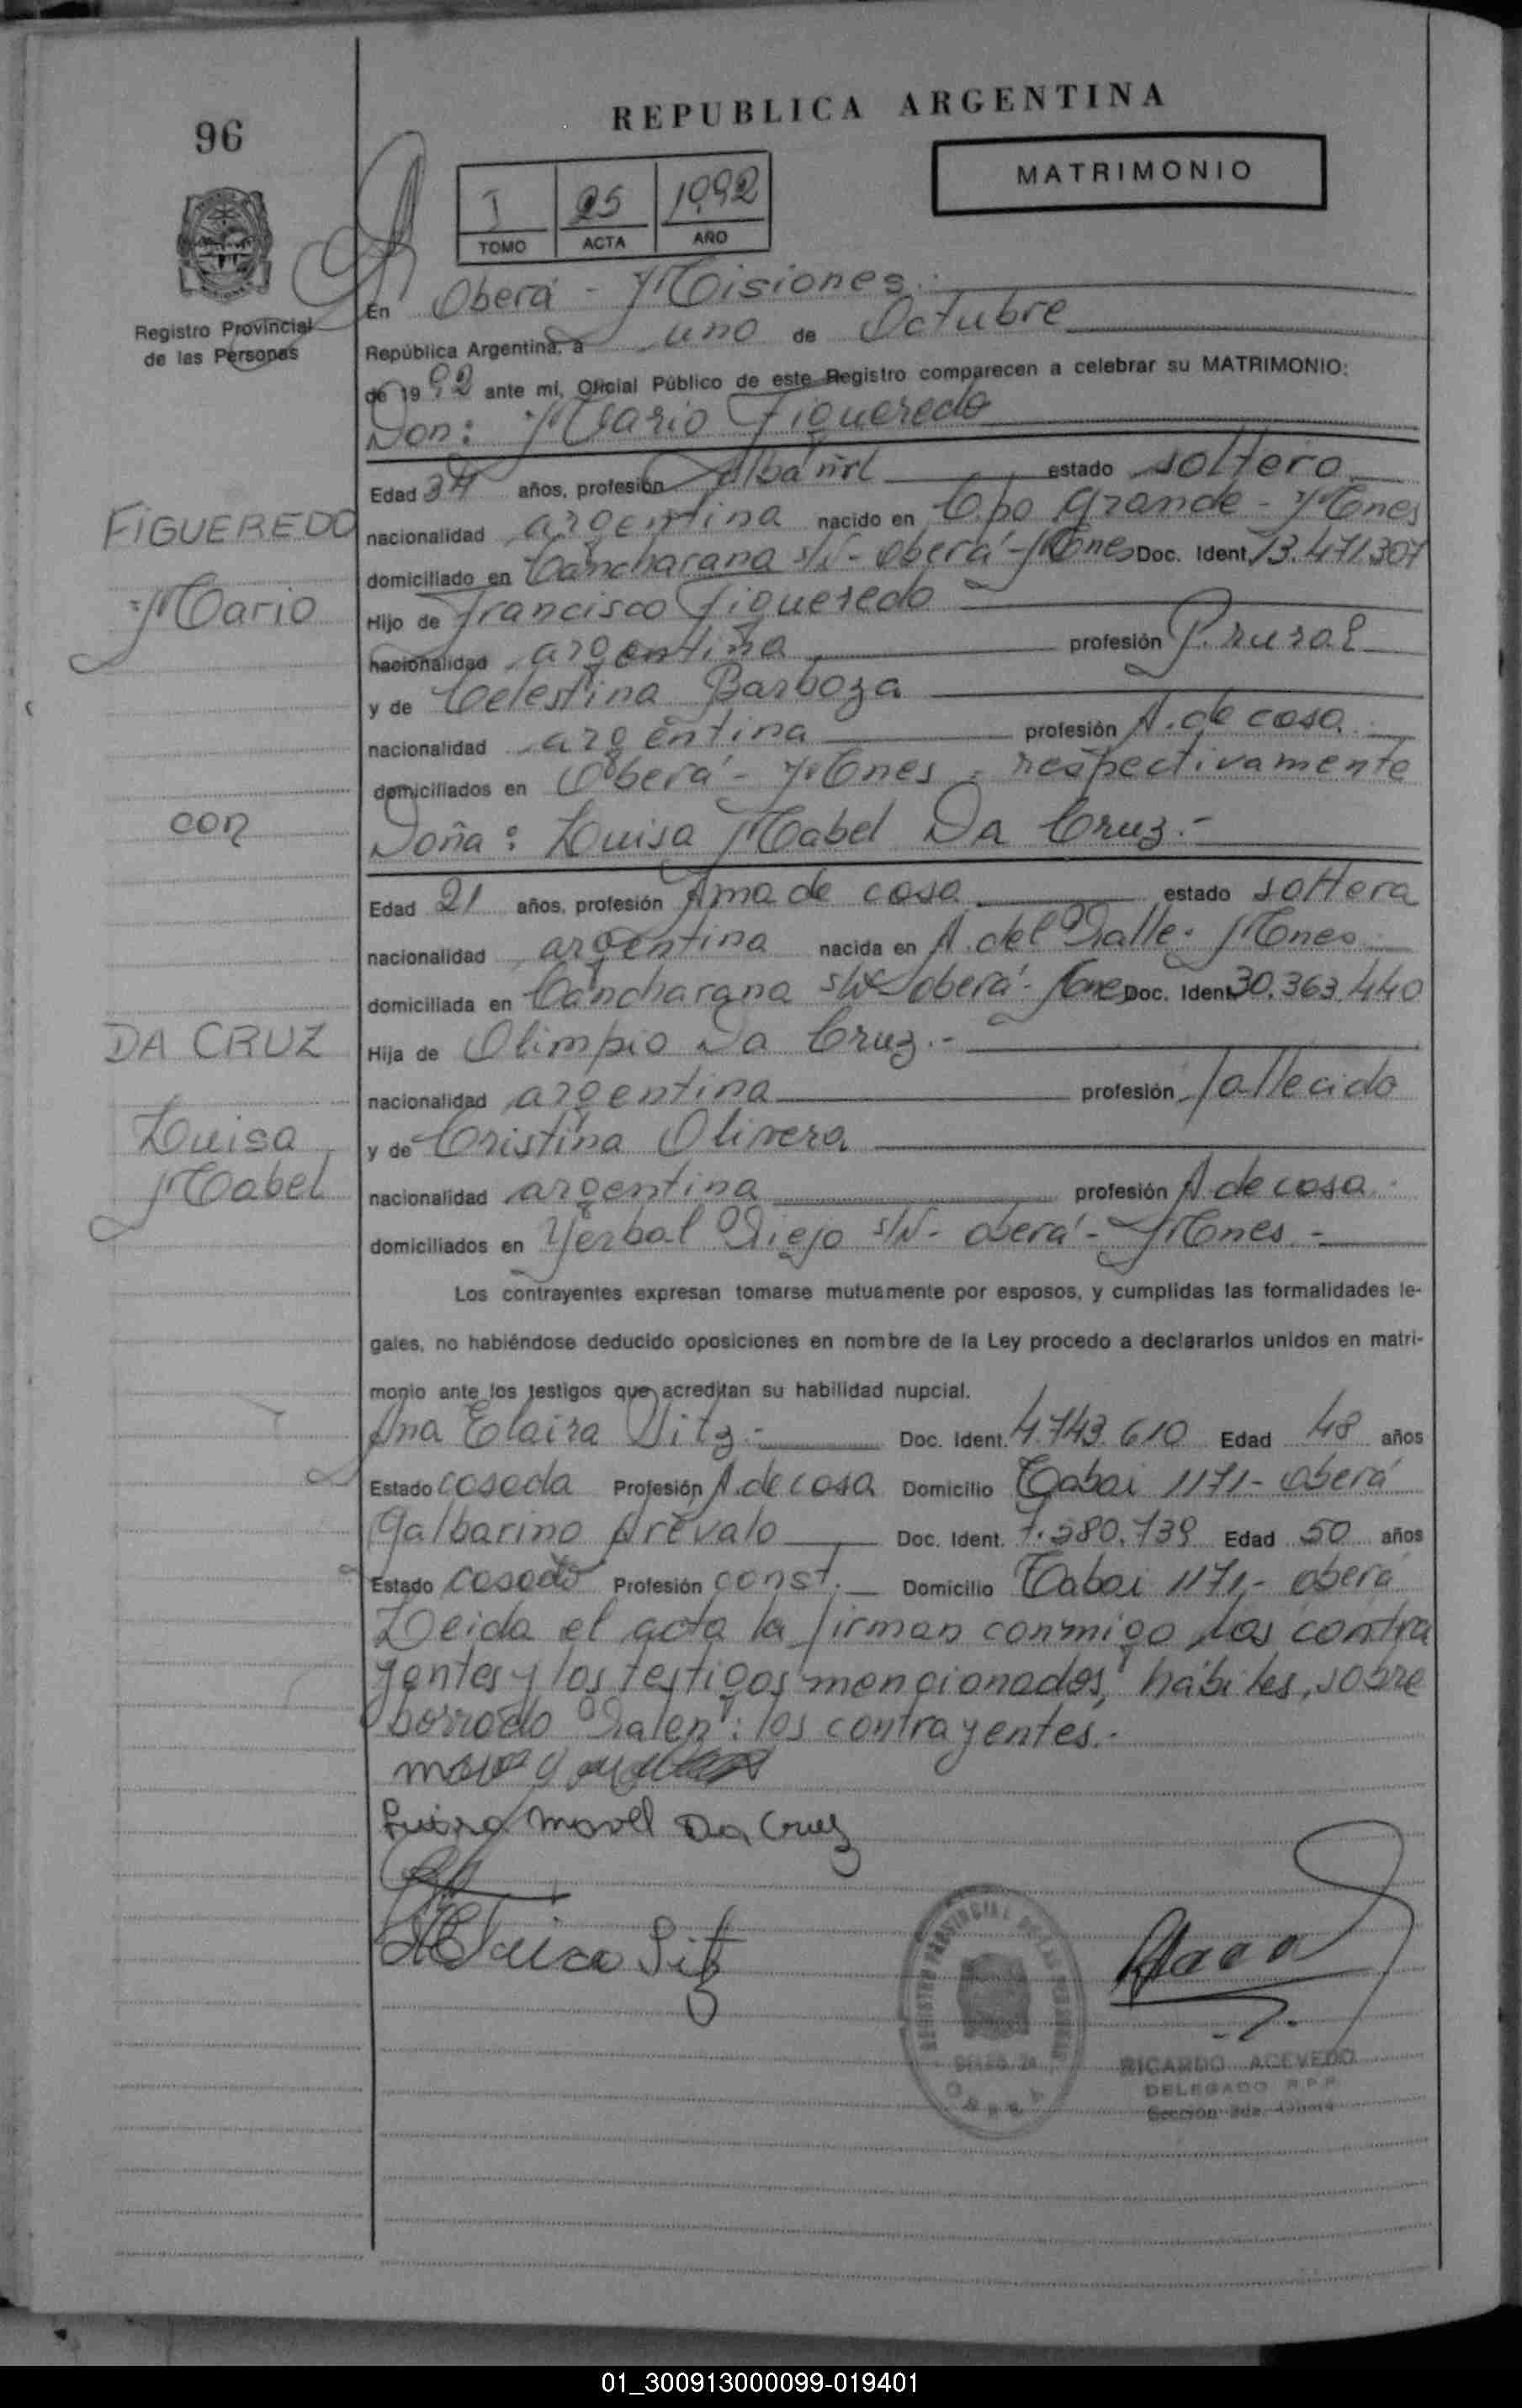 REPUBLICA ARGENTINA
96
MATRIMONIO
I 95 1992
TOMO ACTA AÑO
Registro Provincial
de las Personas
En Oberá - Misiones.
República Argentina, a uno de Octubre
de 1992 ante mi, Oficial Público de este Registro comparecen a celebrar su MATRIMONIO:
Don: Mario Figueredo
Edad 34 años, profesión Albañil estado soltero
FIGUEREDO
nacionalidad argentina nacido en C.po Grande - Mnes
domiciliado en Cancharana s/N - Oberá - Mnes Doc. Ident. 13.471.307
Mario
Hijo de Francisco Figueredo
nacionalidad argentina profesión P. rural
y de Celestina Barboza
nacionalidad argentina profesión A. de casa.
domiciliados en Oberá - Mnes - respectivamente
con
Doña: Luisa Mabel Da Cruz.-
Edad 21 años, profesión Ama de casa estado soltera
nacionalidad argentina nacida en A. del Valle - Mnes
domiciliada en Cancharana s/N oberá - Mnes Doc. Ident. 30.363.440
DA CRUZ
Hija de Olimpio Da Cruz.-
nacionalidad argentina profesión fallecido
Luisa
y de Cristina Olivera
Mabel
nacionalidad argentina profesión A. de casa.
domiciliados en Yerbal Viejo s/N - oberá - Mnes -
Los contrayentes expresan tomarse mutuamente por esposos, y cumplidas las formalidades le-
gales, no habiéndose deducido oposiciones en nombre de la Ley procedo a declararlos unidos en matri-
monio ante los testigos que acreditan su habilidad nupcial.
Ana Elaira Vitz.- Doc. Ident. 4.743.610 Edad 48 años
Estado casada Profesión A. de casa Domicilio Tabai 1171 - oberá
Galbarino Arevalo Doc. Ident. 7.580.739 Edad 50 años
Estado casado Profesión const. Domicilio Tabai 1171 - oberá
Leida el acta la firman conmigo los contra
yentes y los testigos mencionados, hábiles, sobre
borrado "Valen": los contrayentes.-
Luisa Mavel Da Cruz
RICARDO ACEVEDO
DELEGADO R.P.P.
REGISTRO PROVINCIAL DE LAS PERSONAS
OBERA
01_300913000099-019401